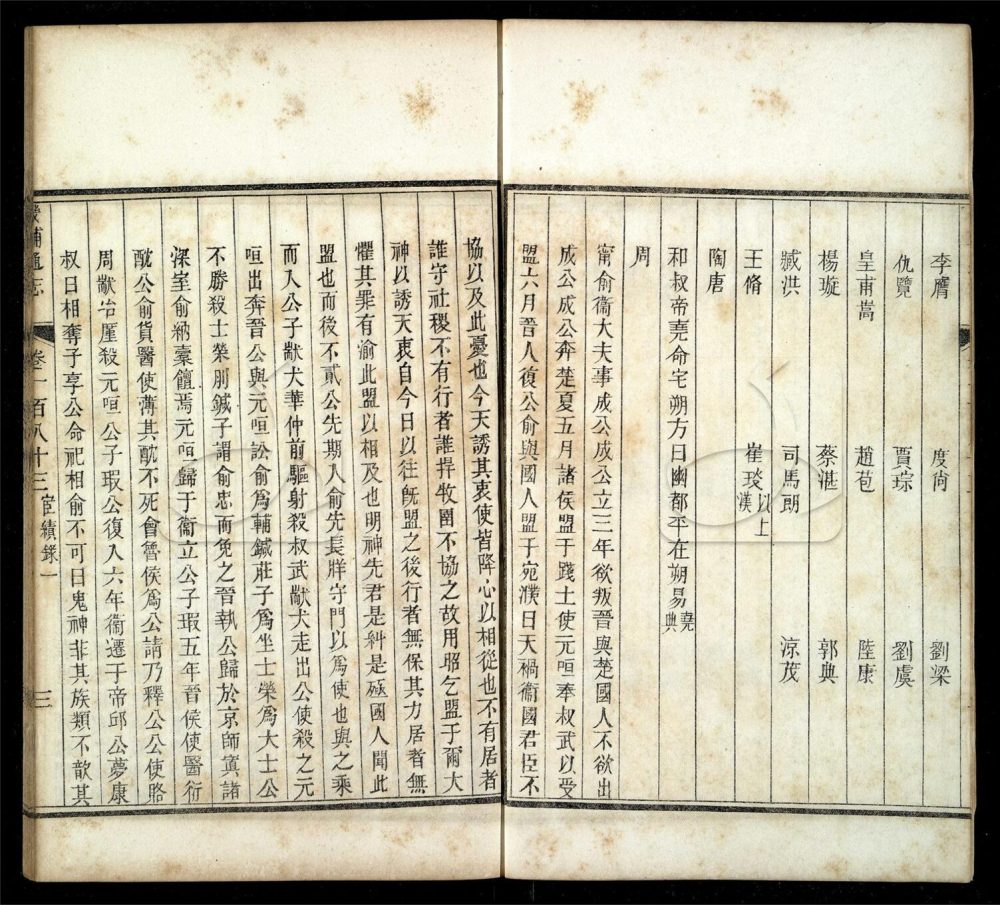 李膺 度尚 劉梁
仇覽 賈琮 劉虞
皇甫嵩 趙苞 陸康
楊璇 蔡湛 郭典
臧洪 司馬朗 涼茂
王脩 崔琰 以上漢
陶唐
和叔帝堯命宅朔方曰幽都平在朔易堯典
周
甯俞衞大夫事成公成公立三年欲叛晉與楚國人不欲出
成公成公奔楚夏五月諸侯盟于踐土使元咺奉叔武以受
盟六月晉人復公俞與國人盟于宛濮曰天禍衞國君臣不
協以及此憂也今天誘其衷使皆降心以相從也不有居者
誰守社稷不有行者誰捍牧圉不協之故用昭乞盟于爾大
神以誘天衷自今日以往旣盟之後行者無保其力居者無
懼其罪有渝此盟以相及也明神先君是糾是殛國人聞此
盟也而後不貳公先期入俞先長牂守門以爲使也與之乘
而入公子歂犬華仲前驅射殺叔武歂犬走出公使殺之元
咺出奔晉公與元咺訟俞爲輔鍼莊子爲坐士榮爲大士公
不勝殺士榮刖鍼子謂俞忠而免之晉執公歸於京師寘諸
深室俞納橐饘焉元咺歸于衞立公子瑕五年晉侯使醫衍
酖公俞貨醫使薄其酖不死會魯侯爲公請乃釋公公使賂
周歂冶廑殺元咺公子瑕公復入六年衞遷于帝邱公夢康
叔曰相奪予享公命祀相俞不可曰鬼神非其族類不歆其
畿輔通志 卷一百八十三 宦績錄一 三